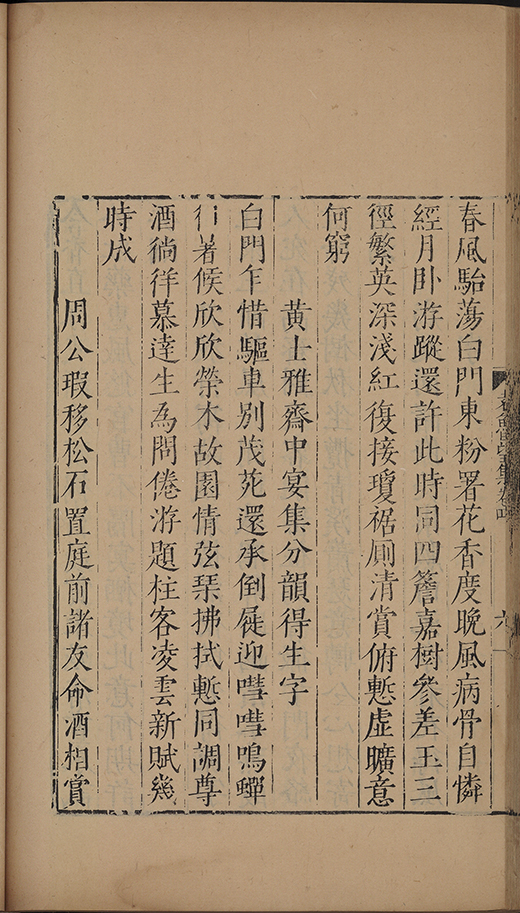 春風駘蕩白門東粉署花香度晚風病骨自憐
經月臥游蹤還許此時同四簷嘉樹參差玉三
徑繁英深淺紅復接瓊裾廁清賞俯慙虛曠意
何窮
黃士雅齋中宴集分韻得生字
白門乍惜驅車別茂苑還承倒屣迎嘒嘒鳴蟬
行著候欣欣榮木故園情弦琴拂拭慙同調尊
酒徜徉慕達生為問倦游題柱客凌雲新賦幾
時成
周公瑕移松石置庭前諸友命酒相賞